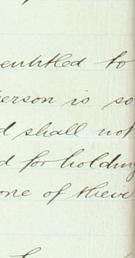 entitled to
erson is so
d shall not
d for holding
one of these